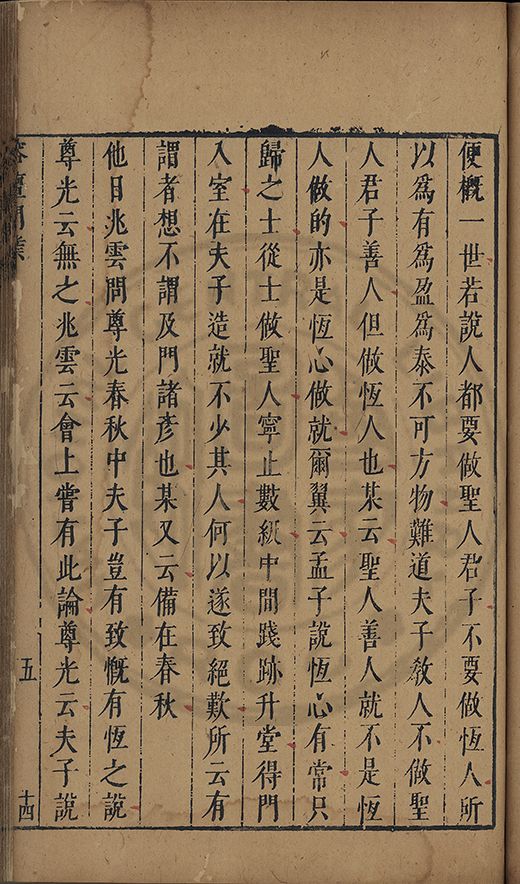 便概一世若說人都要做聖人君子不要做恆人所
以爲有爲盈爲泰不可方物難道夫子教人不做聖
人君子善人但做恆人也某云聖人善人就不是恆
人做的亦是恆心做就爾翼云孟子說恆心有常只
歸之士從士做聖人寧止數紙中間踐跡升堂得門
入室在夫子造就不少其人何以遂致絕歎所云有
謂者想不謂及門諸彥也某又云備在春秋
他日兆雲問尊光春秋中夫子豈有致慨有恆之說
尊光云無之兆雲云會上嘗有此論尊光云夫子說
五
十四